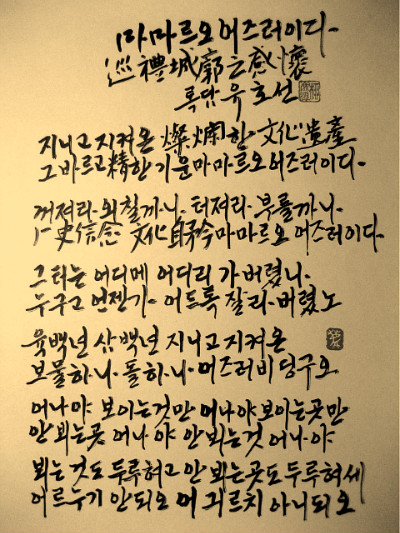 마마르오 어즈러이다.
巡禮城郭之感懷
록담 유호선
지니고 지켜온 燦爛한 文化遺産
그 바르고 精한 기운 마마르오 어즈러이다.
꺼져라 외칠까나. 터져라 부를까나.
史信念 文化自矜 마마르오 어즈러이다.
그 터는 어디메 어디리 가버렸나.
누구고 언젠가. 어드륵 잘라 버렸노
육백년 삼백년 지니고 지켜온
보물하나. 돌하나. 어즈러비 덩구오.
어나야 보이는것만 어나야 보이는곳만
안 뵈는곳 어나야 안 뵈는것 어나야
뵈는것도 두루혀고 안 뵈는곳도 두루혀세
어르누기 안되오 어긔르치 아니되오